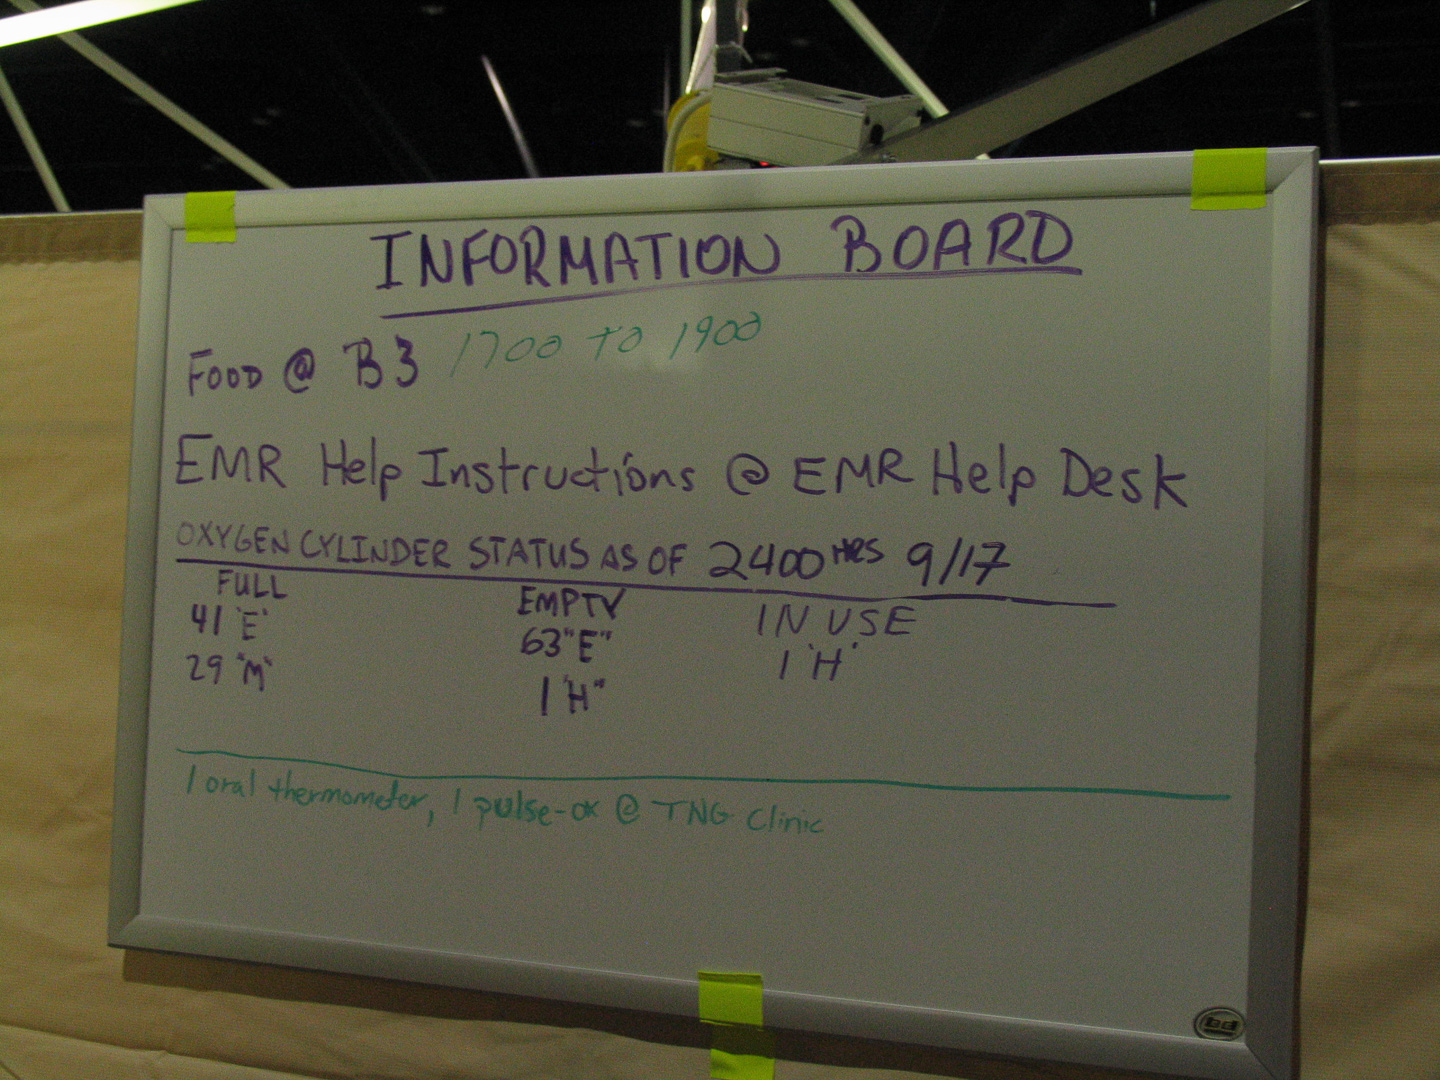 INFORMATION BOARD
FOOD @ B3 1700 TO 1900
EMR Help Instructions @ EMR Help Desk
OXYGEN CYLINDER STATUS AS OF 2400 HRS 9/17
FULL EMPTY IN USE
41 "E" 63 "E" 1 "H"
29 "M" 1 "H"
1 oral thermometer, 1 pulse-ox @ TNG Clinic